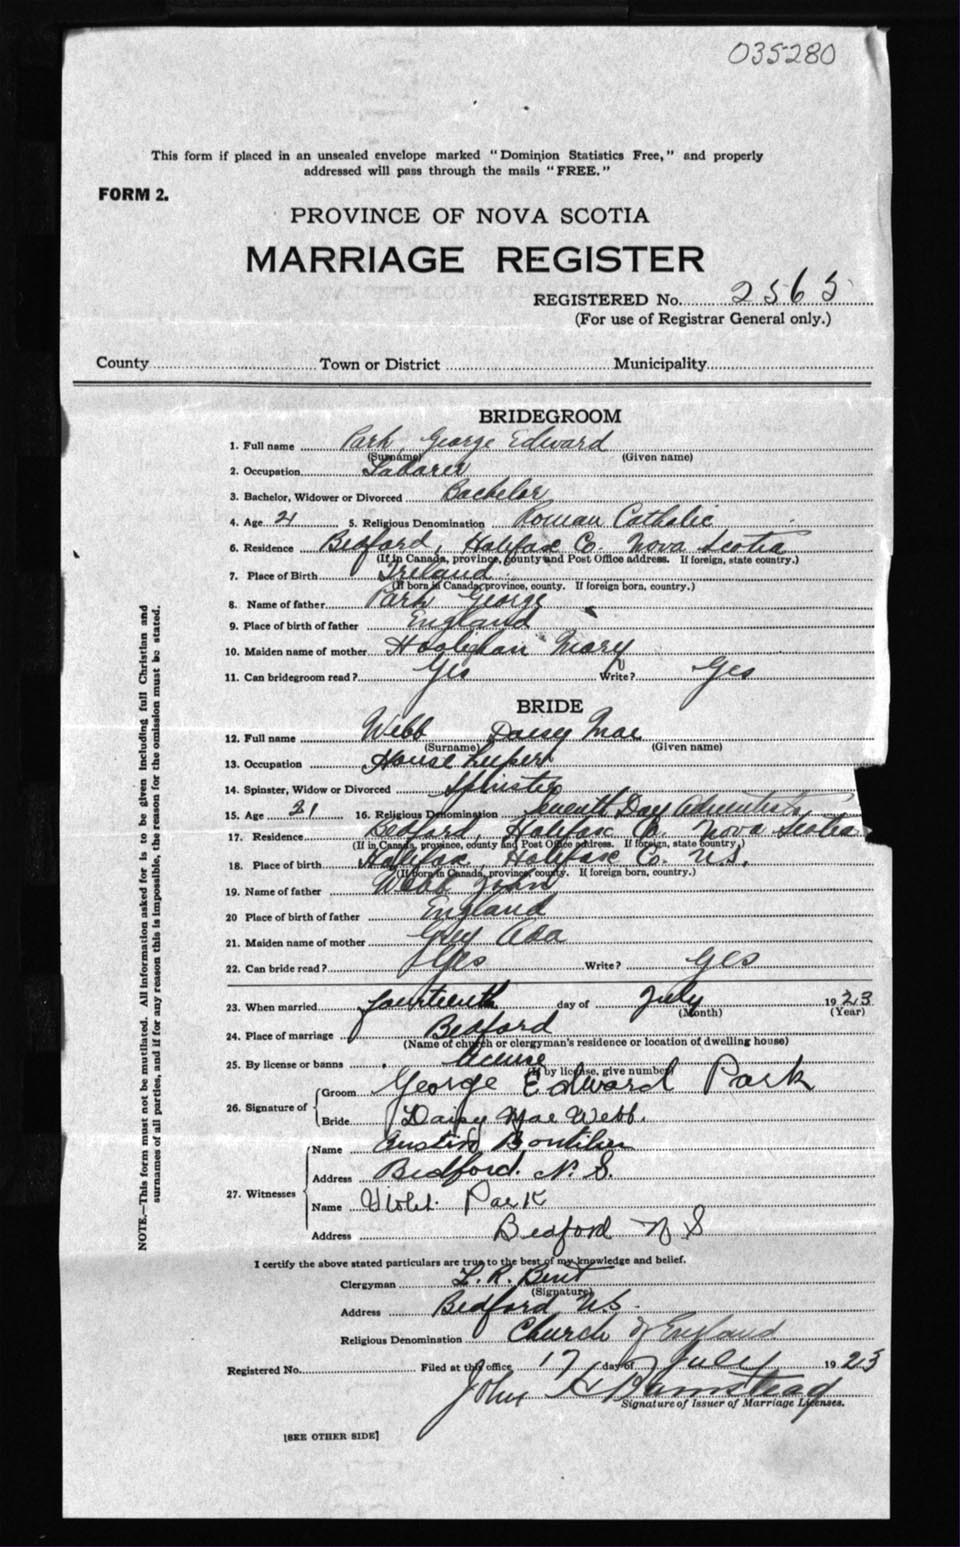 035280
This form if placed in an unsealed envelope marked "Dominion Statistics Free," and properly
addressed will pass through the mails "FREE."
FORM 2.
PROVINCE OF NOVA SCOTIA
MARRIAGE REGISTER
REGISTERED No. 2565
(For use of Registrar General only.)
County Town or District Municipality
BRIDEGROOM
1. Full name Park, George Edward
(Surname) (Given name)
2. Occupation Labarer
3. Bachelor, Widower or Divorced Bachelor
4. Age 21 5. Religious Denomination Roman Catholic
6. Residence Bedford, Halifax Co. Nova Scotia
(If in Canada, province, county and Post Office address. If foreign, state country.)
7. Place of Birth Ireland
(If born in Canada, province, county. If foreign born, country.)
8. Name of father Park George
9. Place of birth of father England
10. Maiden name of mother Mary
11. Can bridegroom read? Yes Write? Yes
BRIDE
12. Full name Webb Daisy Mae
(Surname) (Given name)
13. Occupation House keeper
14. Spinster, Widow or Divorced Spinster
15. Age 21 16. Religious Denomination Seventh Day Adventists
17. Residence Bedford, Halifax Co. Nova Scotia
(If in Canada, province, county and Post Office address. If foreign, state country.)
18. Place of birth Halifax, Halifax Co. N.S.
(If born in Canada, province, county. If foreign born, country.)
19. Name of father Webb John
20 Place of birth of father England
21. Maiden name of mother Grey Ada
22. Can bride read? Yes Write? Yes
23. When married fourteenth day of July 1923
(Month) (Year)
24. Place of marriage Bedford
(Name of church or clergyman's residence or location of dwelling house)
25. By license or banns license
(If by license, give number)
26. Signature of Groom George Edward Park
Bride Daisy Mae Webb.
27. Witnesses Name Austin
Address Bedford. N. S.
Name Violet Park
Address Bedford N S
I certify the above stated particulars are true to the best of my knowledge and belief.
Clergyman L. R. Bent
(Signature)
Address Bedford N.S.
Religious Denomination Church of England
Registered No. Filed at this office 17 day of July 1923
John H Bamstead
Signature of Issuer of Marriage Licenses.
[SEE OTHER SIDE]
NOTE.—This form must not be mutilated. All information asked for is to be given including full Christian and
surnames of all parties, and if for any reason this is impossible, the reason for the omission must be stated.